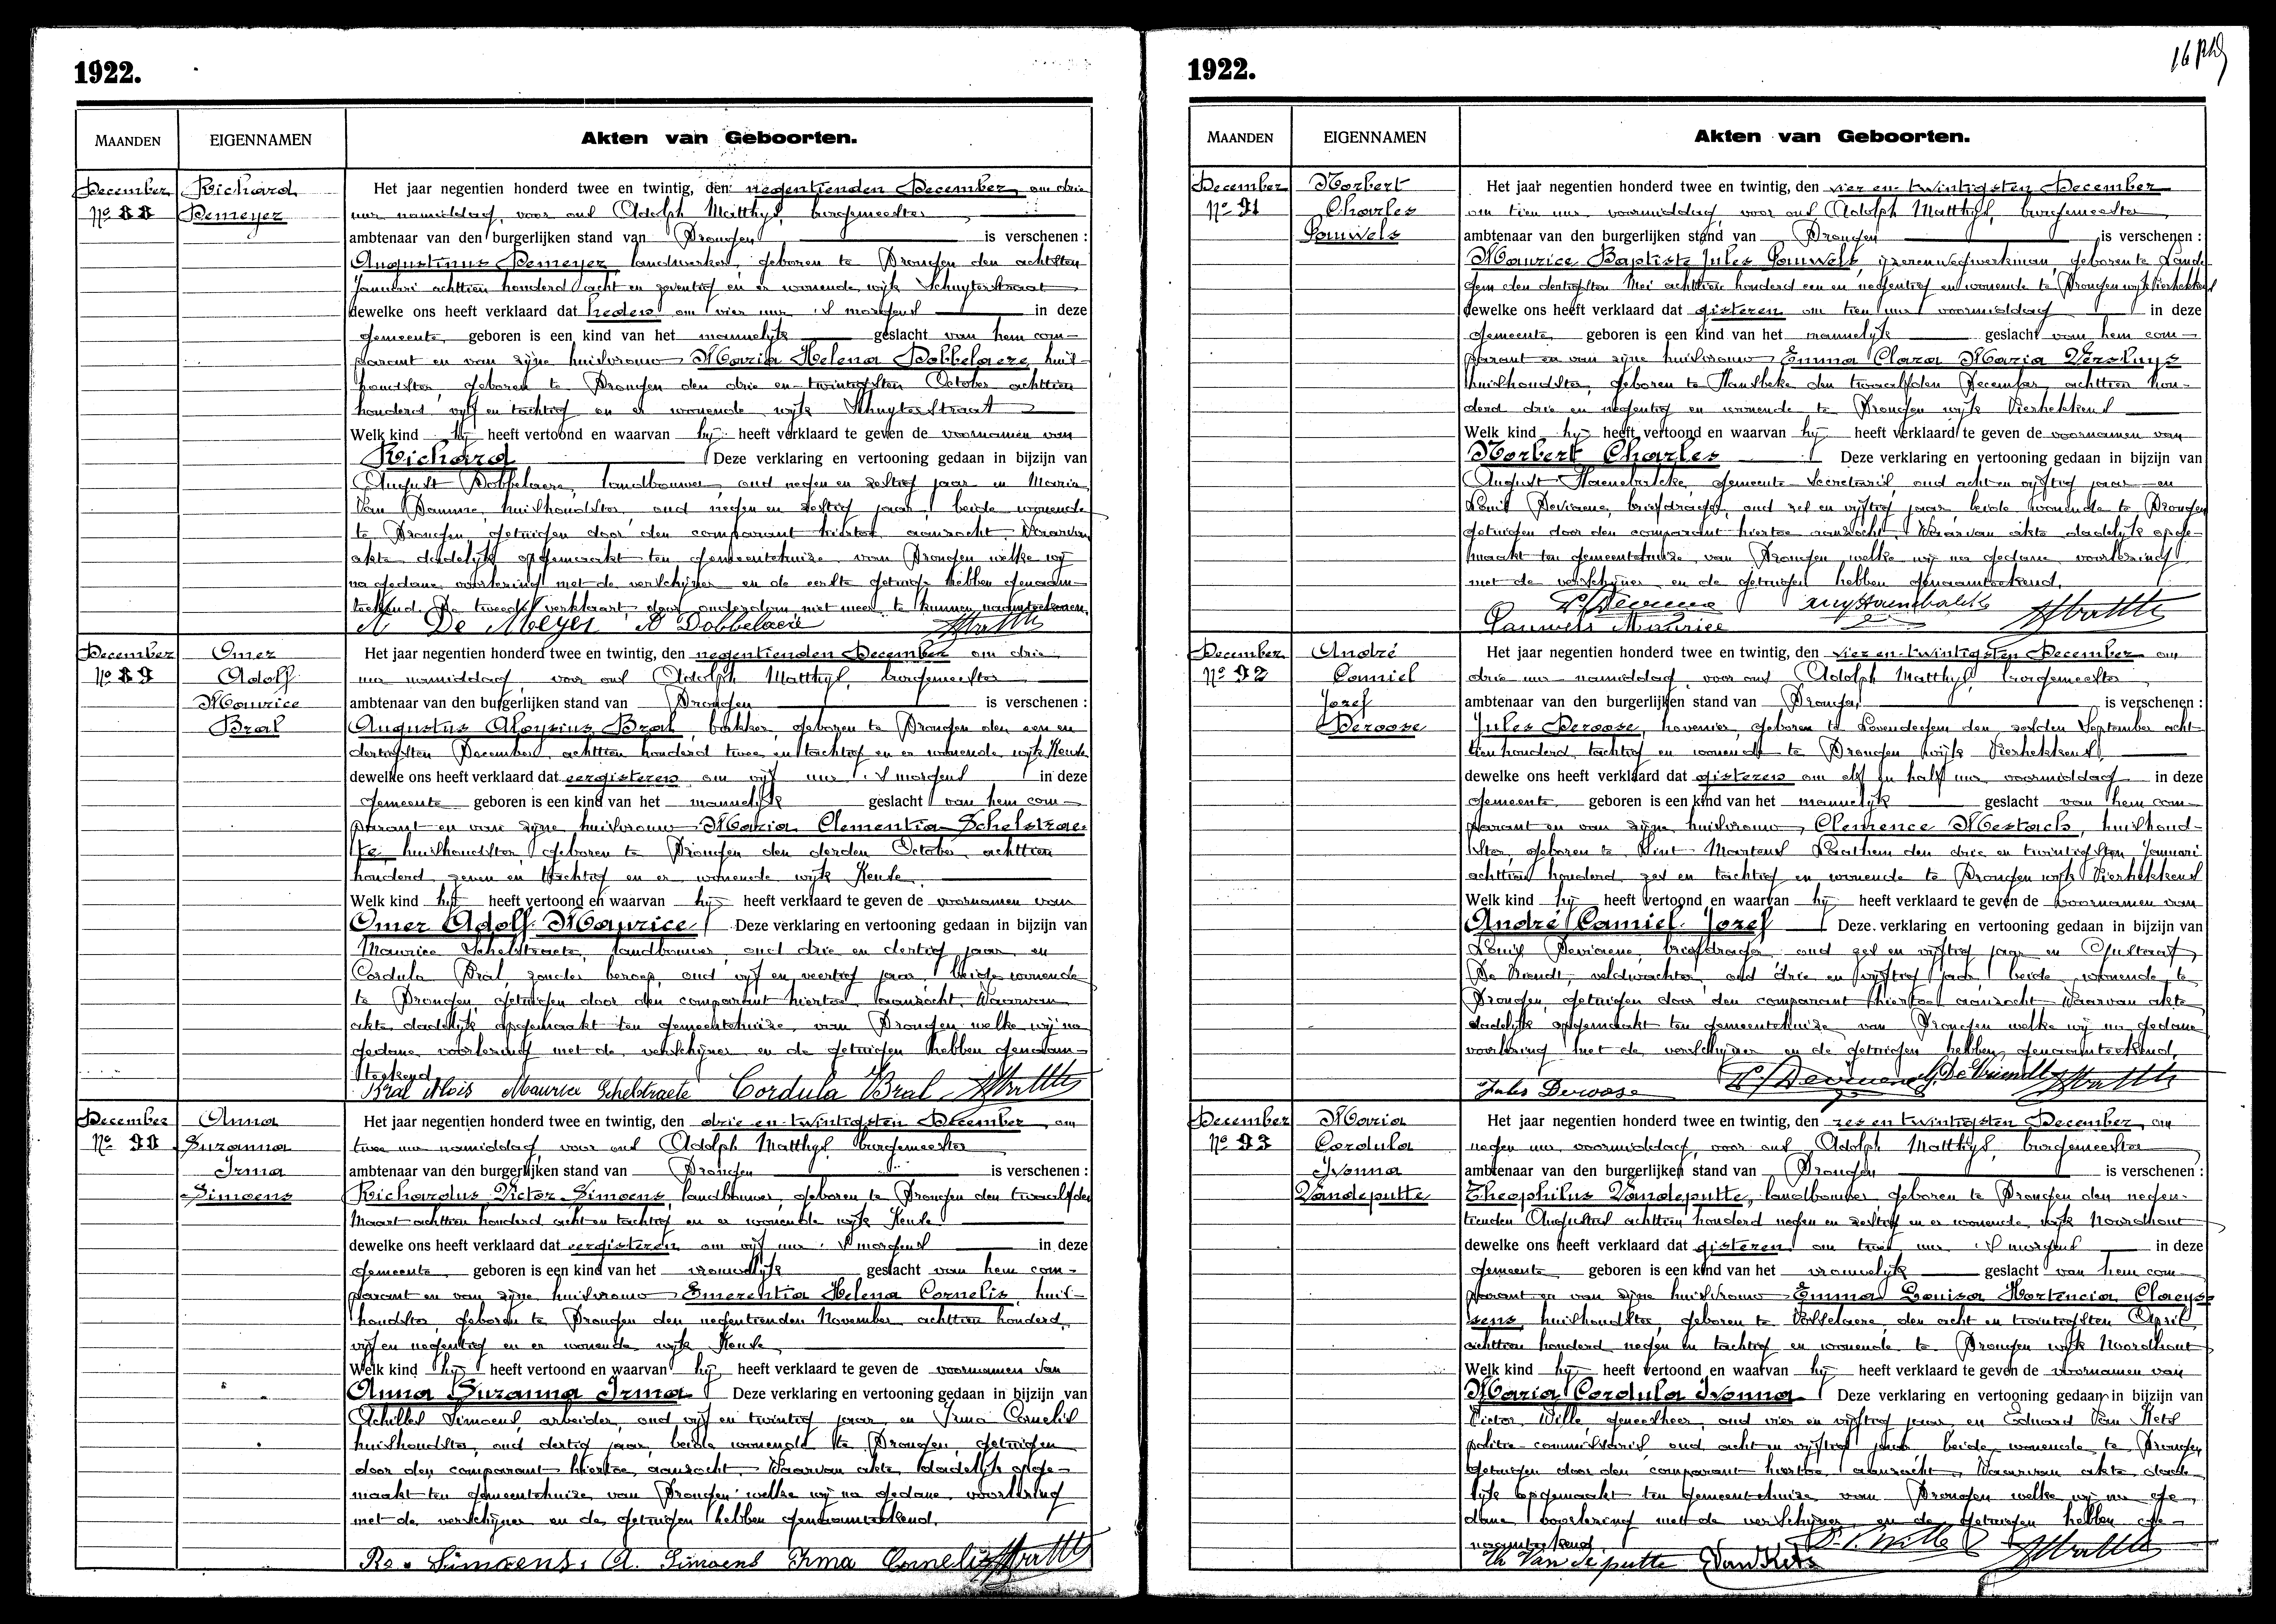 1922.
MAANDEN
EIGENNAMEN
Akten van Geboorten.
December
No 88
Richard
Demeyer
Het jaar negentien honderd twee en twintig, den negentienden December, om drie
uur namiddag, voor ons Adolph Matthys, burgemeester
ambtenaar van den burgerlijken stand van Drongen is verschenen :
Augustinus Demeyer, landwerker, geboren te Drongen den achtsten
Januari achttien honderd acht en zeventig en er wonende wijk Schuyterstraat
dewelke ons heeft verklaard dat heden om vier uur 's morgens in deze
gemeente geboren is een kind van het mannelijk geslacht van hem com-
parant en van zijne huisvrouw Maria Helena Dobbelaere, huis-
houdster, geboren te Drongen den drie en twintigsten October achttien
honderd vijf en tachtig en er wonende wijk Schuyterstraat
Welk kind hij heeft vertoond en waarvan hij heeft verklaard te geven de voornamen van
Richard Deze verklaring en vertooning gedaan in bijzijn van
August Dobbelaere, landbouwer, oud negen en zestig jaar en Maria
Van Damme, huishoudster, oud negen en zestig jaar, beide wonende
te Drongen, getuigen door den comparant hiertoe aanzocht. Waarvan
akte dadelijk opgemaakt ten gemeentehuize van Drongen welke wij
na gedane voorlezing met de verschijner en de eerste getuige hebben genaam-
teekend. De tweede verklaart door ouderdom niet meer te kunnen naamteekenen.
A De Meyer A Dobbelaere
December
No 89
Omer
Adolf
Maurice
Bral
Het jaar negentien honderd twee en twintig, den negentienden December om drie
uur namiddag, voor ons Adolph Matthys, burgemeester
ambtenaar van den burgerlijken stand van Drongen is verschenen :
Augustus Aloysius Bral, bakker, geboren te Drongen den een en
dertigsten December achttien honderd twee en tachtig en er wonende wijk Keuze
dewelke ons heeft verklaard dat eergisteren om vijf uur 's morgens in deze
gemeente geboren is een kind van het mannelijk geslacht van hem com-
parant en van zijne huisvrouw Maria Clementia Schelstrae-
te, huishoudster, geboren te Drongen den derden October achttien
honderd zeven en tachtig en er wonende wijk Keuze
Welk kind hij heeft vertoond en waarvan hij heeft verklaard te geven de voornamen van
Omer Adolf Maurice Deze verklaring en vertooning gedaan in bijzijn van
Maurice Schelstraete, landbouwer, oud drie en dertig jaar en
Cordula Bral, zonder beroep, oud vijf en veertig jaar, beide wonende
te Drongen, getuigen door den comparant hiertoe aanzocht. Waarvan
akte dadelijk opgemaakt ten gemeentehuize van Drongen welke wij na
gedane voorlezing met de verschijner en de getuigen hebben genaam-
teekend
Bral Alois Maurice Schelstraete Cordula Bral
December
No 90
Anna
Suzanna
Irma
Simoens
Het jaar negentien honderd twee en twintig, den drie en twintigsten December, om
twee uur namiddag, voor ons Adolph Matthys, burgemeester
ambtenaar van den burgerlijken stand van Drongen is verschenen :
Richardus Victor Simoens, landbouwer, geboren te Drongen den twaalfden
Maart achttien honderd acht en tachtig en er wonende wijk Keuze
dewelke ons heeft verklaard dat eergisteren om vijf uur 's morgens in deze
gemeente geboren is een kind van het vrouwelijk geslacht van hem com-
parant en van zijne huisvrouw Emerentia Helena Cornelis, huis-
houdster, geboren te Drongen den negentienden November achttien honderd
vijf en negentig en er wonende wijk Keuze
Welk kind hij heeft vertoond en waarvan hij heeft verklaard te geven de voornamen van
Anna Suzanna Irma Deze verklaring en vertooning gedaan in bijzijn van
Achilles Simoens, arbeider, oud vijf en twintig jaar en Irma Cornelis
huishoudster, oud dertig jaar, beide wonende te Drongen, getuigen
door den comparant hiertoe aanzocht. Waarvan akte dadelijk opge-
maakt ten gemeentehuize van Drongen welke wij na gedane voorlezing
met de verschijner en de getuigen hebben genaamteekend.
Re. Simoens. A. Simoens Irma Cornelis
1922.
MAANDEN
EIGENNAMEN
Akten van Geboorten.
December
No 91
Norbert
Charles
Pauwels
Het jaar negentien honderd twee en twintig, den vier en twintigsten December
om tien uur voormiddag, voor ons Adolph Matthys, burgemeester
ambtenaar van den burgerlijken stand van Drongen is verschenen :
Maurice Baptiste Jules Pauwels, ijzerenwegwerkman, geboren te Lande-
gem den dertigsten Mei achttien honderd een en negentig en wonende te Drongen wijk Vierhekkens
dewelke ons heeft verklaard dat gisteren om tien uur voormiddag in deze
gemeente geboren is een kind van het mannelijk geslacht van hem com-
parant en van zijne huisvrouw Emma Clara Maria Versluys
huishoudster, geboren te Hansbeke den twaalfden December achttien hon-
derd drie en negentig en wonende te Drongen wijk Vierhekkens
Welk kind hij heeft vertoond en waarvan hij heeft verklaard te geven de voornamen van
Norbert Charles Deze verklaring en vertooning gedaan in bijzijn van
August Haenebalcke, gemeente secretaris, oud acht en vijftig jaar en
Louis Deviaene, briefdrager, oud zes en vijftig jaar, beide wonende te Drongen
getuigen door den comparant hiertoe aanzocht. Waarvan akte dadelijk opge-
maakt ten gemeentehuize van Drongen welke wij na gedane voorlezing
met de verschijner en de getuigen hebben genaamteekend.
Pauwels Maurice
December
No 92
André
Camiel
Jozef
Deroose
Het jaar negentien honderd twee en twintig, den vier en twintigsten December om
drie uur namiddag, voor ons Adolph Matthys, burgemeester
ambtenaar van den burgerlijken stand van Drongen is verschenen :
Jules Deroose, hovenier, geboren te Lovendegem den zesden September acht-
tien honderd tachtig en wonende te Drongen wijk Vierhekkens
dewelke ons heeft verklaard dat gisteren om elf en half uur voormiddag in deze
gemeente geboren is een kind van het mannelijk geslacht van hem com-
parant en van zijne huisvrouw Clemence Mestach, huishoud-
ster, geboren te Sint Martens Leerne den drie en twintigsten Januari
achttien honderd zes en tachtig en wonende te Drongen wijk Vierhekkens
Welk kind hij heeft vertoond en waarvan hij heeft verklaard te geven de voornamen van
André Camiel Jozef Deze verklaring en vertooning gedaan in bijzijn van
Louis Deviaene, briefdrager, oud zes en vijftig jaar en Gustaaf
De Vriendt, veldwachter, oud drie en vijftig jaar, beide wonende te
Drongen, getuigen door den comparant hiertoe aanzocht. Waarvan akte
dadelijk opgemaakt ten gemeentehuize van Drongen welke wij na gedane
voorlezing met de verschijner en de getuigen hebben genaamteekend.
Jules Deroose G. De Vriendt
December
No 93
Maria
Cordula
Ivonna
Vandeputte
Het jaar negentien honderd twee en twintig, den zes en twintigsten December, om
negen uur voormiddag, voor ons Adolph Matthys, burgemeester
ambtenaar van den burgerlijken stand van Drongen is verschenen :
Theophilus Vandeputte, landbouwer geboren te Drongen den negen-
tienden Augustus achttien honderd negen en zestig en er wonende wijk Noordhout
dewelke ons heeft verklaard dat gisteren om twee uur 's morgens in deze
gemeente geboren is een kind van het vrouwelijk geslacht van hem com-
parant en van zijne huisvrouw Emma Louisa Hortencia Claeys-
sens, huishoudster, geboren te Vosselaere den acht en twintigsten April
achttien honderd negen en tachtig en wonende te Drongen wijk Noordhout
Welk kind hij heeft vertoond en waarvan hij heeft verklaard te geven de voornamen van
Maria Cordula Ivonna Deze verklaring en vertooning gedaan in bijzijn van
Victor Wille, geneesheer, oud vier en vijftig jaar en Eduard Van Kets
politie-commissaris oud acht en vijftig jaar beide wonende te Drongen
getuigen door den comparant hiertoe aanzocht. Waarvan akte dade-
lijk opgemaakt ten gemeentehuize van Drongen welke wij na ge-
dane voorlezing met de verschijner en de getuigen hebben ge-
naamteekend.
Th Van de putte E Van Kets